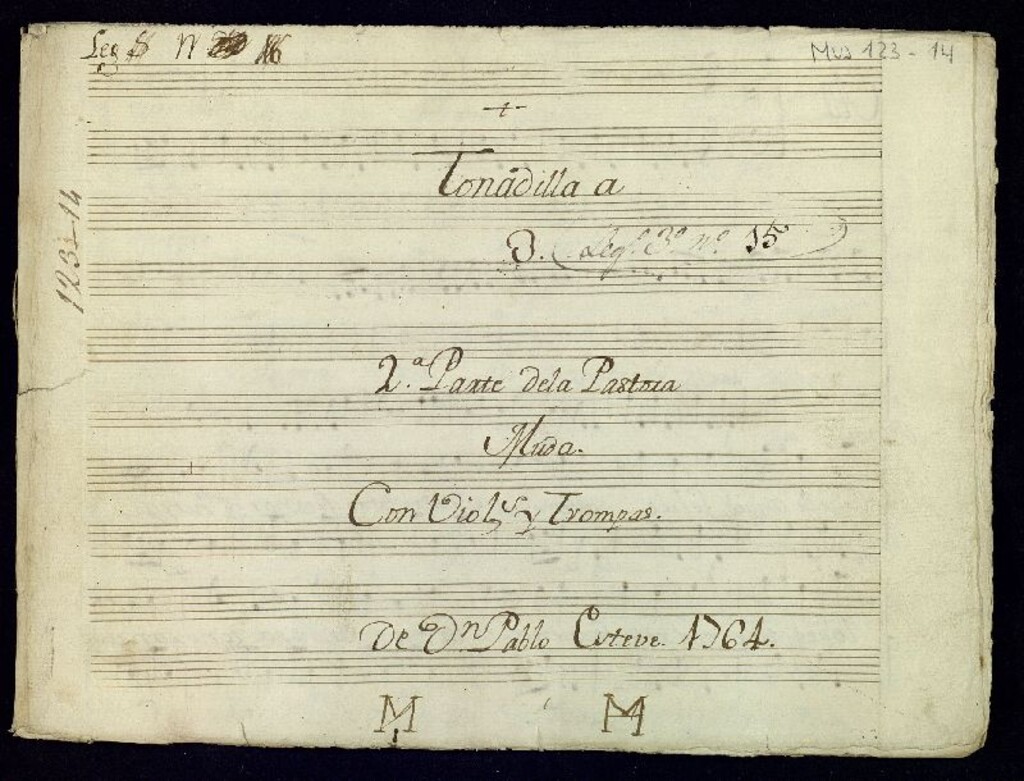 Leg 8 N 16
Mus 123-14
Tonadilla a
3. Legº. 3º nº. 15
123-14
2.ª Parte dela Pastora
Muda.
Con Viol.s y Trompas.
De Dn Pablo Esteve. 1764.
M M